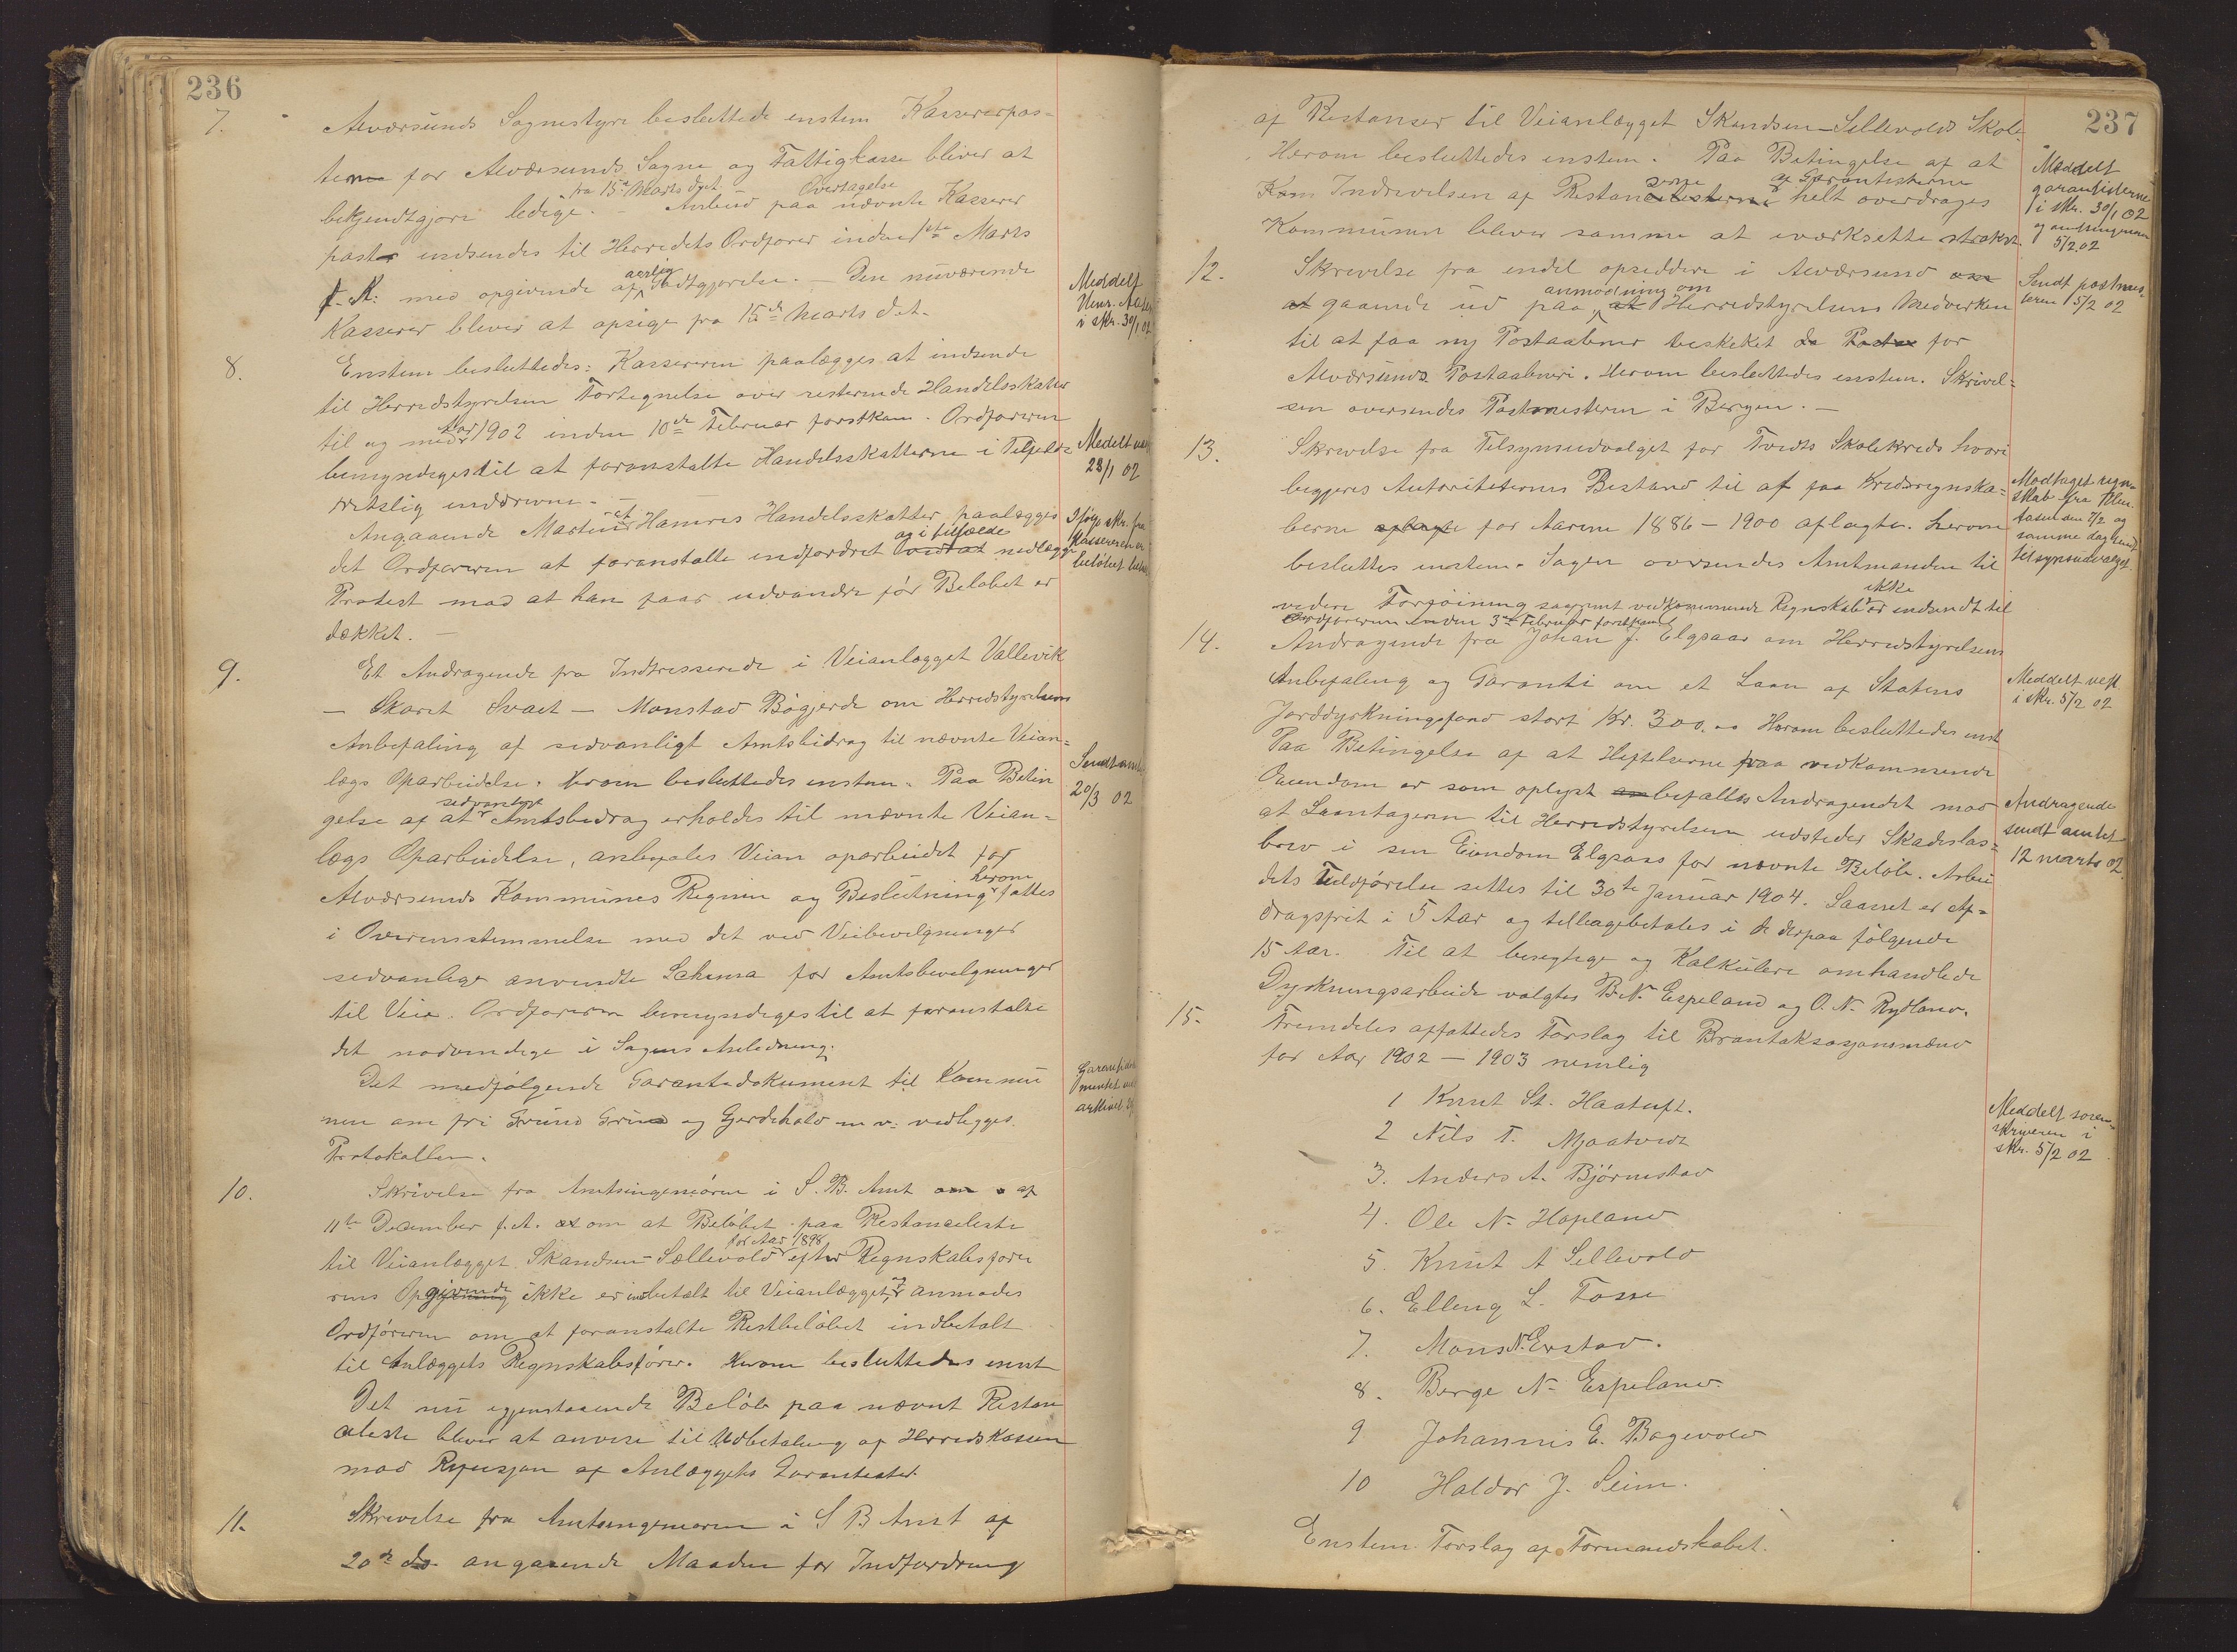 236
7. Alværsunds Sognestyre besluttede enstem Kassererpos-
terne for Alværsunds Sogne og Fattigkasse bliver at
bekjendtgjøre ledige. fra 15de Marts d.et. – Anbud paa Overtagelse nævnte Kasserer
poster indsendes til Herredets Ordfører inden 1ste Marts
f. A: med opgivende af aarlig Godtgjørelse. – Den nuværende
Kasserer bliver at opsige fra 15de Marts d.et.
Meddelt
i skr. 30/1 02
8. Enstem besluttedes: Kassereren paalægges at indsende
til Herredstyrelsen Fortegnelse over resterende Handelsskatter
til og med Aar 1902 inden 10de Februar førstkom. Ordføreren
bemyndiges til at foranstalte Handelsskatterne i Tilfelde
retslig inddrevne. –
Medelt
28/1 02
Angaaende Martin Hamres Handelsskatter paalægges
det Ordføreren at foranstalte indfordret og i tilfælde nedlægge
Protest mod at han faar udvandre før Beløbet er
dækket. –
Ifølge skr. fra
Kassereren er
beløbet
9. Et Andragende fra Indtresserede i Veianlægget Vallevik
– Skaret Svaet – Monstad Bøgjerde om Herredstyrelsens
Anbefaling af sedvanligt Amtsbidrag til nævnte Veian-
lægs Oparbeidelse. Herom besluttedes enstem. Paa Betin
gelse af at sedvanligt Amtsbidrag erholdes til nævnte Veian-
lægs Oparbeidelse, anbefales Veien oparbeidet for
Alværsunds Kommunes Regning og Beslutning herom fattes
i Overensstemmelse med det ved Veibevilgninger
sedvanlige anvendte Schema for Amtsbevilgninger
til Veie. Ordføreren bemyndiges til at foranstalte
det nødvendige i Sagens Anledning.
Sendt amtet
20/3 02
Det medfølgende Garantidokument til Kommu
nen om fri Grund Grus og Gjerdehold m v. vedlegges
Protokollen.
10. Skrivelse fra Amtsingeniøren i S. B. Amt af
11te December f. A. om at Beløbet paa Restanceliste
til Veianlægget Skandsen – Sællevold for Aar 1898 efter Regnskabsføre
rens Opgivende ikke er indbetalt til Veianlægget, og anmodes
Ordføreren om at foranstalte Restbeløbet indbetalt
til Anlæggets Regnskabsfører. Herom besluttedes enst
Det nu igjenstaaende Beløb paa nævnt Restan
celiste bliver at anvise til Udbetaling af Herredskassen
mod Refusjon af Anlæggets Garantister.
11. Skrivelse fra Amtsingeniøren i S B Amt af
20de ds angaaende Maaden for Indfordring
237
af Restanser til Veianlægget Skandsen – Sellevolds Skole.
Herom besluttedes enstem. Paa Betingelse af at
Indrivelsen af Restanserne af Garantisterne helt overdrages
Kommunen bliver samme at iværksette strakst.
Meddelt
garantisterne
i skr. 30/1 02
og amtsingeniøren
5/2.02
12. Skrivelse fra endel opsiddere i Alværsund
gaaende ud paa anmodning om Herredstyrelsens Medvirken
til at faa ny Postaabner beskiket for
Alværsunds Postaabneri. Herom besluttedes enstem. Skrivel-
sen oversendes Postmesteren i Bergen. –
Sendt postmes-
teren 5/2 02
13. Skrivelse fra Tilsynsudvalget for Tveits Skolekreds hvori
begjæres Autoriteternes Bistand til at faa Kredsregnska-
berne for Aarene 1886 – 1900 aflagte. herom
besluttes enstem. Sagen oversendes Amtmanden til
videre Forføining saafremt vedkommende Regnskab ikke er indsendt til
Ordføreren inden 3de Februar førstkom.
Modtaget regn-
skab fra
den 7/2 og
samme dag sendt
tilsynsudvalget.
14. Andragende fra Johan J. Elgsaas om Herredstyrelsens
Anbefaling og Garanti om et Laan af Statens
Jorddyrkningsfond stort Kr. 300.00 Herom besluttedes enst
Paa Betingelse af at Heftelserne paa vedkommende
Eiendom er som oplyst befalles Andragendet mod
at Laantageren til Herredstyrelsen udsteder Skadesløs-
brev i sin Eiendom Elgsaas for nævnte Beløb. Arbei
dets Fuldførelse settes til 30te Januar 1904. Laanet er Af-
dragsfrit i 5 Aar og tilbagebetales i de derpaa følgende
15 Aar. Til at besigtige og Kalkulere omhandlede
Dyrkningsarbeide valgtes B. N. Espeland og O. N. Rydland.
Meddelt vest
i skr. 5/2 02
Andragende
sendt amtet
12 marts 02.
15. Fremdeles affattedes Forslag til Brantaksasjonsmænd
for Aar 1902 – 1903 nemlig
1 Knut St. Haatuft.
2 Nils T. Mjaatvedt
3. Anders A. Bjørnstad
4. Ole N. Hopland
5. Knut A Sellevold
6. Elling L. Fosse
7. Mons N. Erstad.
8. Berge N. Espeland.
9 Johannes E. Bogevold
10 Haldor J. Seim.
Enstem Forslag af Formandskabet.
Meddelt soren-
skriveren i
skr. 5/2 02